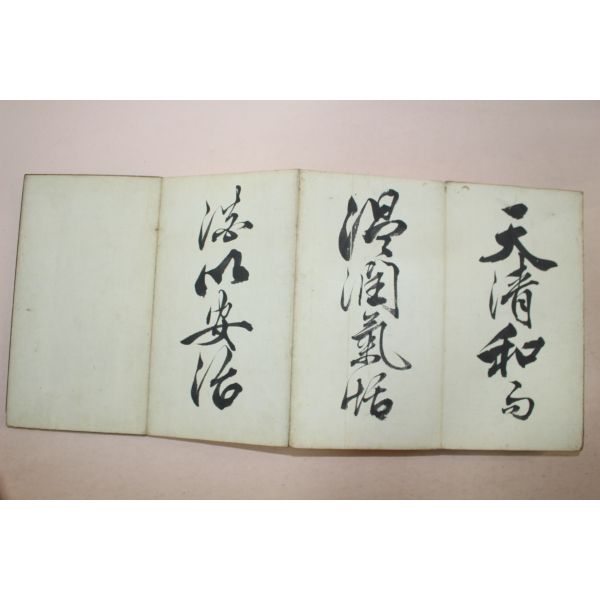 天清和而
温潤氣恬
淡以安治